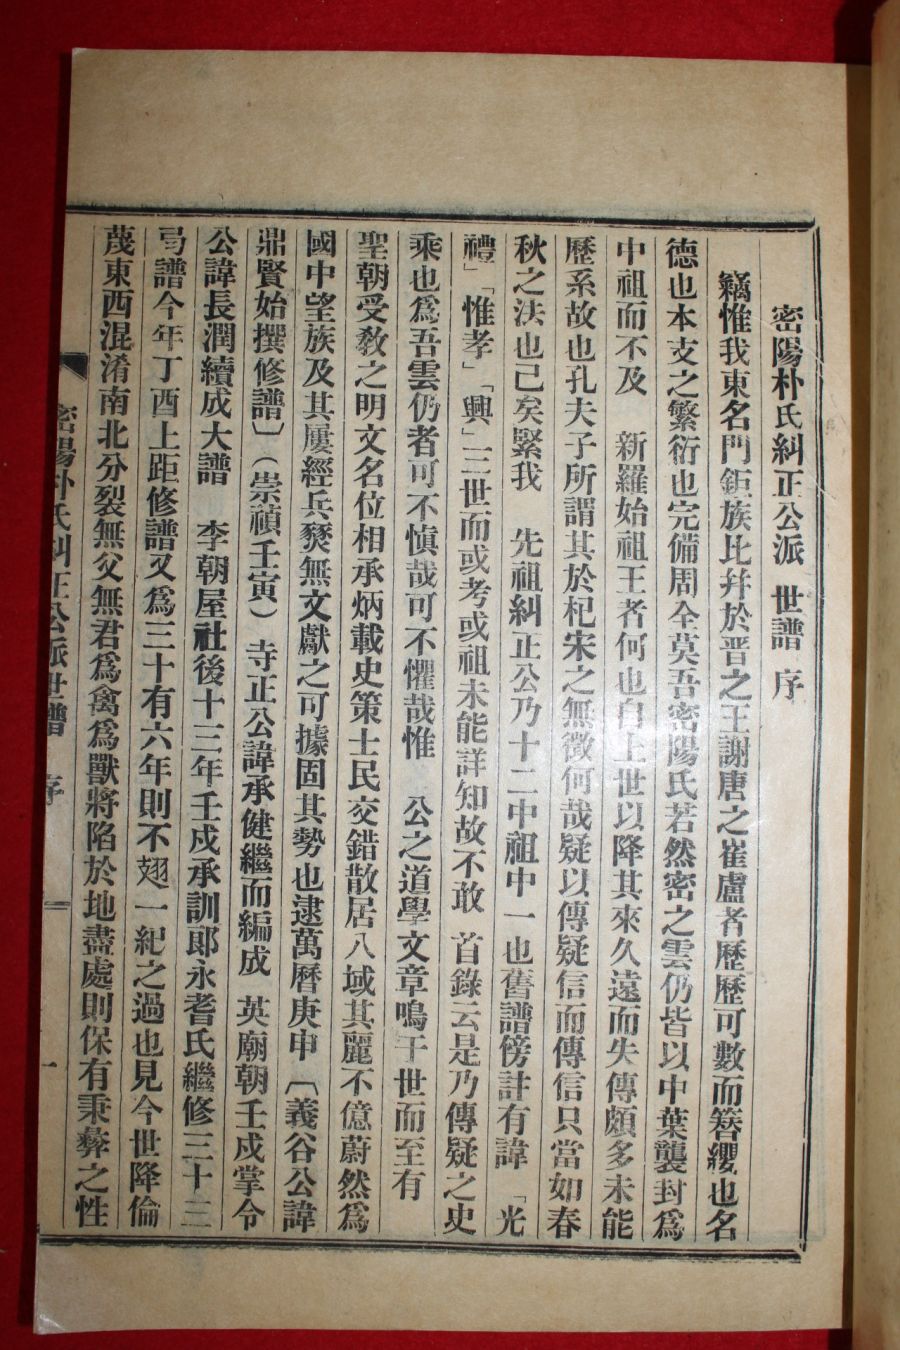 密陽朴氏糾正公派 世譜 序
竊惟我東名門鉅族比幷於晋之王謝唐之崔盧者歷歷可數而簪纓也名
德也本支之繁衍也完備周全莫吾密陽氏若然密之雲仍皆以中葉襲封爲
中祖而不及 新羅始祖王者何也自上世以降其來久遠而失傳頗多未能
歷系故也孔夫子所謂其於杞宋之無徵何哉疑以傳疑信而傳信只當如春
秋之法也已矣緊我 先祖糾正公乃十二中祖中一也舊譜傍註有諱「光
禮」「惟孝」「興」三世而或考或祖未能詳知故不敢 首錄云是乃傳疑之史
乘也爲吾雲仍者可不愼哉可不懼哉惟 公之道學文章鳴于世而至有
聖朝受敎之明文名位相承炳載史策士民交錯散居八域其麗不億蔚然爲
國中望族及其屢經兵燹無文獻之可據固其勢也逮萬曆庚申〔義谷公諱
鼎賢始撰修譜〕(崇禎壬寅) 寺正公諱承健繼而編成 英廟朝壬戍掌令
公諱長潤續成大譜 李朝屋社後十三年壬戍承訓郞永耆氏繼修三十三
弓譜今年丁酉上距修譜又爲三十有六年則不翅一紀之過也見今世降倫
蔑東西混淆南北分裂無父無君爲禽爲獸將陷於地盡處則保有秉彜之性
密陽朴氏糾正公派世譜 序 一